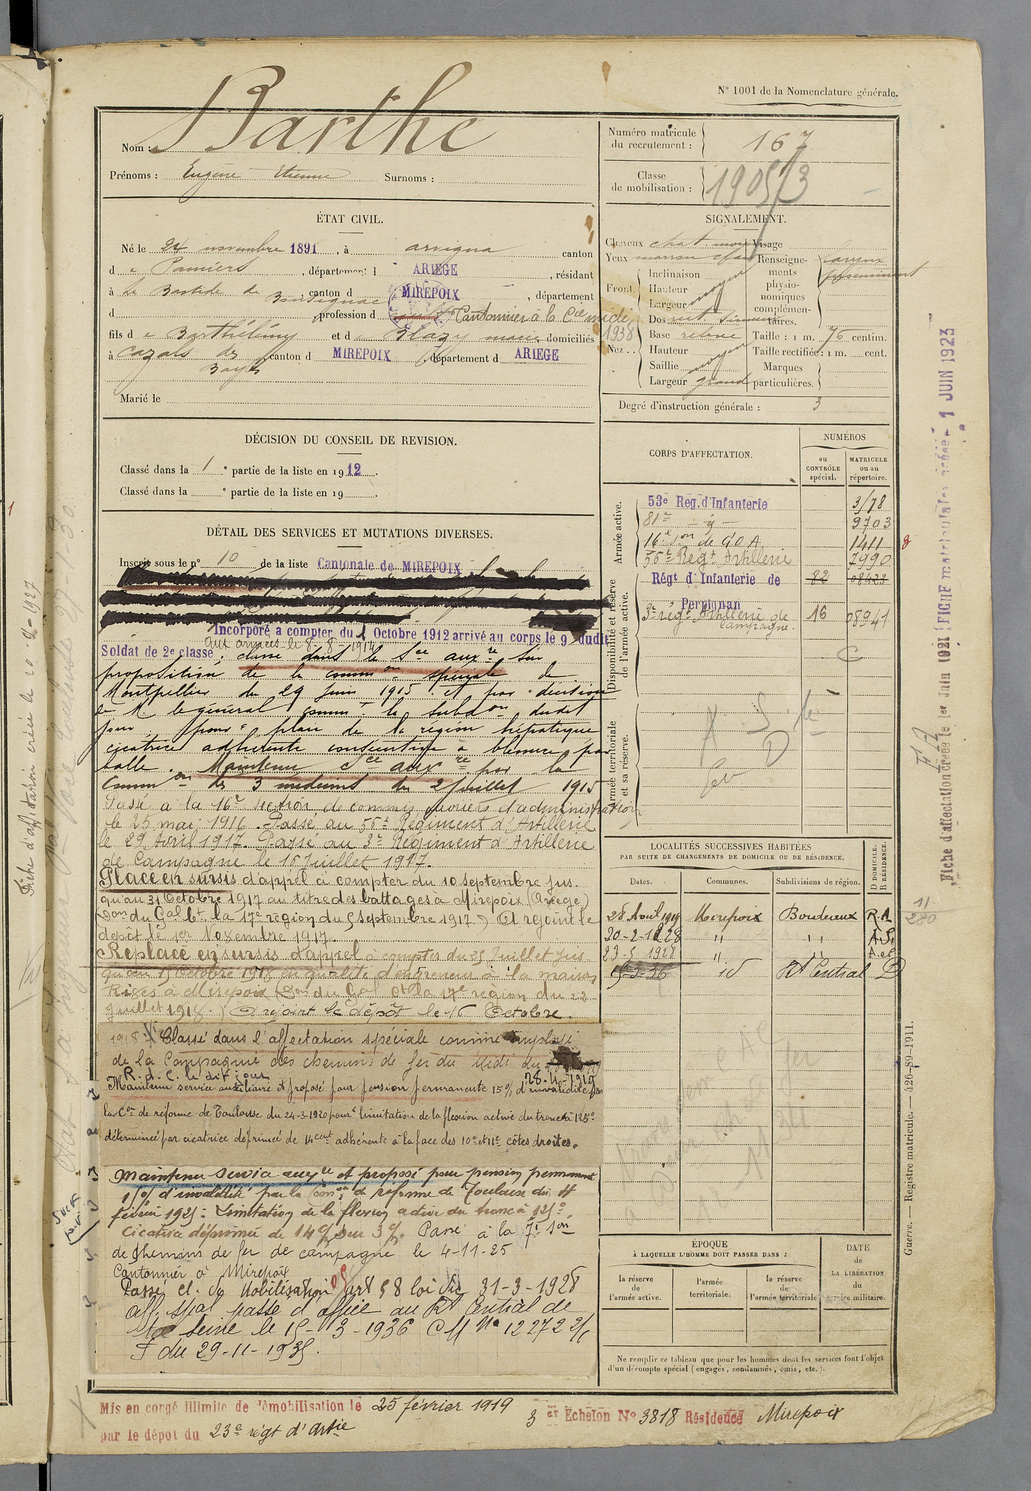 N° 1001 de la Nomenclature générale.
Nom : Barthe
Prénoms : Eugène Etienne Surnoms :
Numéro matricule du recrutement : 167
Classe de mobilisation : 1905/3
ÉTAT CIVIL.
Né le 24 novembre 1891, à Arvigna canton
d e Pamiers, département d ARIEGE, résidant
à La Bastide de Bousignac canton d MIREPOIX, département
d profession d Cantonnier à la Cie midi
1938
fils d e Barthélémy et d Blazy marie domiciliés
à Cazals des Bayls canton d MIREPOIX département d ARIEGE
Marié le
SIGNALEMENT.
Cheveux chat. noir Visage
Yeux marron
Renseignements physionomiques complémentaires.
Front. Inclinaison
Hauteur
Largeur moyen
Nez.. Dos rect. sinueux
Base relevé Taille : 1 m. 76 centim.
Hauteur Taille rectifiée : 1 m. cent.
Saillie moyen Marques
Largeur grand particulières.
Degré d'instruction générale : 3
DÉCISION DU CONSEIL DE REVISION.
Classé dans la 1e partie de la liste en 1912.
Classé dans la e partie de la liste en 19
DÉTAIL DES SERVICES ET MUTATIONS DIVERSES.
Inscrit sous le n° 10 de la liste Cantonale de MIREPOIX
Incorporé a compter du 1 Octobre 1912 arrivé au corps le 9 dudit
aux armées le 8-8-1914
Soldat de 2e classe ; classé dans le Sce auxre sur
proposition de la common spéciale de
Montpellier du 29 juin 1915 et par décision
de M. le général commt la subdon dudit
jour pour plaie de la région hépatique
cicatrice adhérente consécutive à blessure par
balle. Maintenu Sce auxre par la
Common des 3 médecins du 2 juillet 1915
Passé à la 16e Section de commis ouvriers d'administration
le 25 mai 1916. Passé au 56e Régiment d'Artillerie
le 29 Avril 1917. Passé au 3e Régiment d'Artillerie
de Campagne le 16 juillet 1917.
Placé en sursis d'appel à compter du 10 septembre jus-
qu'au 31 Octobre 1917 au titre des battages à Mirepoix (Ariège)
(Don du Gal Ct la 17e région du 5 septembre 1917.) A rejoint le
dépôt le 1er Novembre 1917.
Replacé en sursis d'appel à compter du 25 juillet jus-
qu'au 15 Octobre 1918 en qualité d'engreneur à la maison
Rives à Mirepoix (Don du Gal Ct la 17e région du 22
juillet 1918.) A rejoint le dépôt le 16 Octobre
1918. Classé dans l'affectation spéciale comme employé
de la Compagnie des chemins de fer du Midi du
R.d.C. le dit jour 28-4-1919
Maintenu service auxiliaire et proposé pour pension permanente 15% d'invalidité par
la Con de réforme de Toulouse du 24-3-1920 pour : limitation de la flexion active du tronc à 125°
déterminée par cicatrice déprimée de 14cent adhérente à la face des 10e et 11e côtes droites.
Maintenu service auxre et proposé pour pension permanent
% d'invalidité par la Comon de réforme de Toulouse du 11
février 1925 : Limitation de la flexion active du tronc à 125°
cicatrice déprimée de 14 % sur 3 % Passé à la 7e Son
de chemins de fer de campagne le 4-11-25
Cantonnier à Mirepoix
Passe cl. de Mobilisation 05 art 58 loi du 31-3-1928
aff. spal passé d'office au Rt Central de
la Seine le 15-3-1936 CM N° 12272 2/1
F du 29-11-1935.
CORPS D'AFFECTATION.
NUMÉROS
au CONTRÔLE spécial.
MATRICULE ou au répertoire.
Armée active.
53e Reg. d'Infanterie 3/78
81e - d° - 9703
16e Son de COA 1411
56e Regt Artillerie 7990
Disponibilité et réserve de l'armée active.
Régt d'Infanterie de Perpignan 82 08428
3e régt Artillerie de campagne. 16 08941
C
Armée territoriale et sa réserve.
LOCALITÉS SUCCESSIVES HABITÉES
PAR SUITE DE CHANGEMENTS DE DOMICILE OU DE RÉSIDENCE.
Dates. Communes. Subdivisions de région. D DOMICILE. R RÉSIDENCE.
28 Avril 1919 Mirepoix Bordeaux R.A
20-2-1928 " "
23-5-1928 "
15-3-36 id Rt Central D
ÉPOQUE
À LAQUELLE L'HOMME DOIT PASSER DANS :
la réserve de l'armée active.
l'armée territoriale.
la réserve de l'armée territoriale
DATE de LA LIBÉRATION du service militaire.
Ne remplir ce tableau que pour les hommes dont les services font l'objet
d'un décompte spécial (engagés, condamnés, omis, etc.).
Mis en congé illimité de démobilisation le 25 février 1919
par le dépôt du 23e régt d'Artie
3 er Echelon N° 3818 Résidence Mirepoix
Guerre. — Registre matricule. — 426-89-1911.
Fiche d'affectation créée le 1er Juin 1921
FICHE matriculaire créée - 1 JUIN 1923
Fiche d'affectation créée le 20-2-1927
11/280